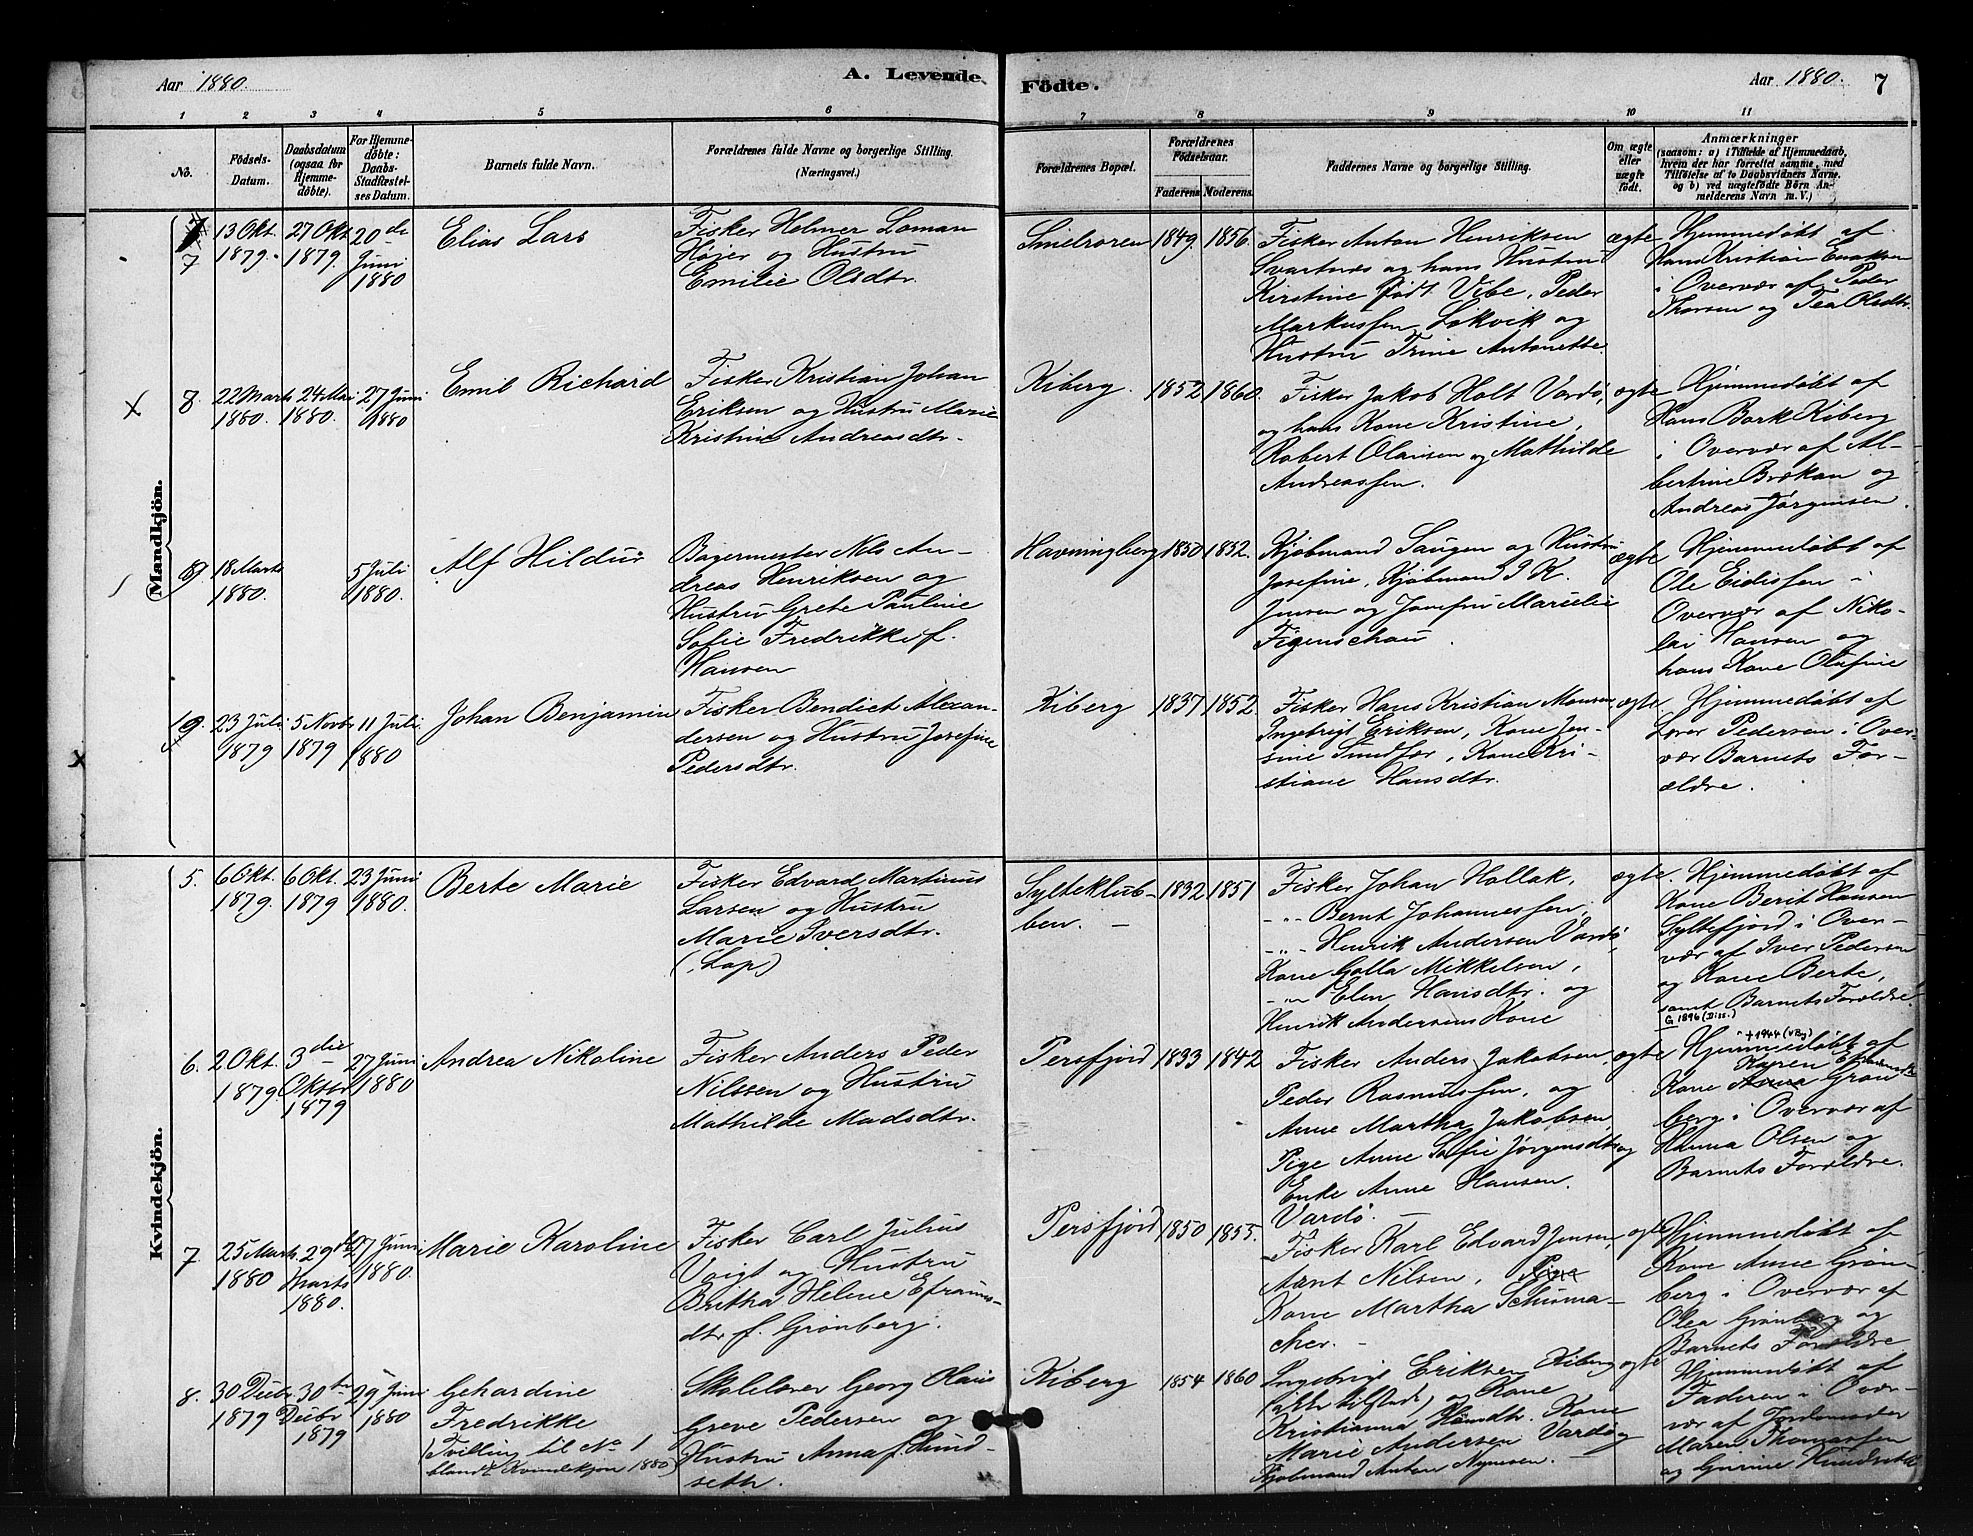 Aar 1880.
A. Levende
Födte.
Aar 1880.
7
1 2 3 4 5 6 7 8 9 10 11
No.
Födsels-Datum.
Daabsdatum (ogsaa for Hjemmedöbte).
For Hjemmedøbte: Daabs-Stadfæstelses Datum.
Barnets fulde Navn.
Forældrenes fulde Navne og borgerlige Stilling. (Næringsvei.)
Forældrenes Bopæl.
Forældrenes Födselsaar.
Faderens. Moderens.
Faddernes Navne og borgerlige Stilling.
Om ægte eller uægte födt.
Anmærkninger
(saasom: a) i Tilfælde af Hjemmedaab,
hvem der har forrettet samme, med
Tilföielse af to Daabsvidners Navne.
og b) ved uægtefödte Börn An-
melderens Navn m. V.)
Mandkjön.
7
13 Okt. 1879.
27 Okt. 1879.
20de Juni 1880
Elias Lars
Fisker Helmer Loman
Højer og Hustru
Emilie Olsdtr.
Smelroren
1849. 1856.
Fisker Anton Henriksen
Svartnæs og hans Hustru
Kirstine født Vibe, Peder
Markussen Løkvik og
Hustru Trine Antonette.
ægte
Hjemmedøbt af
Hans Kristian Enoksen
i Overvær af Peder
Thorsen og Tea Olsdtr.
8.
22 Marts 1880.
24 Mai 1880.
27 Juni 1880
Emil Richard
Fisker Kristian Johan
Eriksen og Hustru Marie
Kristine Andreasdtr.
Kiberg.
1852 1860.
Fisker Jakob Holt Vardø,
og hans Kone Kristine,
Robert Olaisen og Mathilde
Andreassen.
ægte
Hjemmedøbt af
Hans Bork Kiberg
i Overvær af Al-
bertine Brokan og
Andreas Jørgensen.
9
18 Marts 1880.
5 Juli 1880.
Alf Hildur
Bagermester Nels An-
dreas Henriksen og
Hustru Grete Pauline
Sofie Fredrikke f.
Hansen
Havningberg
1850 1852.
Kjøbmand Saugen og Hustru
Josefine, Kjøbmand J. K.
Jensen og Josefru Marielie
Figenschau.
ægte
Hjemmedøbt af
Ole Eidissen i
Overvær af Niko-
lai Hansen og
hans Kone Olufine
19.
23 Juli 1879
5 Novbr 1879
11 Juli 1880
Johan Benjamin
Fisker Bendict Alexan-
dersen og Hustru Josefine
Pedersdtr.
Kiberg
1837 1852.
Fisker Hans Kristian Monsen
Ingebrigt Eriksen, Kone Jen-
sine Sundfær, Kone Kri-
stiane Hansdtr.
ægte
Hjemmedøbt af
Lærer Pedersen i Over-
vær Barnets For-
ældre.
Kvindekjön.
5.
6 Okt. 1879.
6 Okt. 1879
23 Juni 1880.
Berte Marie
Fisker Edvard Martinus
Larsen og Hustru
Marie Iversdtr.
(Lap)
Sylteklub-
ben. -
1832 1851
Fisker Johan Hollak,
-"- Bernt Johannessen,
-"- Henrik Andersen Vardø,
Kone Golla Mikkelsen,
-"- Elen Hansdtr. og
Henrik Andersens Kone
ægte.
Hjemmedøbt af
Kone Berit Hansen
Syltefjord i Over-
vær af Iver Pedersen
og Kone Berte,
samt Barnets Forældre.
G 1896 (Diss.)
+1944 (v By)
6.
2 Okt. 1879.
3die Oktbr 1879
27 Juni 1880
Andrea Nikoline
Fisker Anders Peder
Nilssen og Hustru
Mathilde Madsdtr.
Persfjord
1833 1842
Fisker Anders Jakobsen,
Peder Rasmussen, og
Anne Martha Jakobsen,
Pige Anne Sofie Jørgensdtr og
Enke Anne Hansen.
Vardø.
ægte
Hjemmedøbt af
Karen
Kone Anna Grøn
berg i Overvær af
Hanna Olsen og
Barnets Forældre.
7
25 Marts 1880
29de Marts 1880.
27 Juni 1880.
Marie Karoline
Fisker Carl Julius
Voigt og Hustru
Britha Helene Efraims-
dtr f. Grønberg.
Persfjord
1850 1855.
Fisker Karl Edvard Jensen,
Arnt Nilsen, Pine
Kone Martha Schuma-
cher. -
ægte
Hjemmedøbt af
Kone Anne Grøn-
berg i Overvær af
Olea Grønberg og
Barnets Forældre
8.
30 Decbr 1879
30te Decbr 1879
29 Juni 1880
Gehardine
Fredrikke
(Tvilling til No 1
blandt Kvindekjön 1880)
Skolelærer Georg Hans
Greve Pedersen og
Hustru Anna f. Lund-
seth.
Kiberg
1854 1860
Ingebrigt Eriksen Kiberg
(ikke tilstede) og Kone
Kristianna Hansdtr. Kone
Marie Andersen Vardø og
Kjøbmand Anton Nynsen. -
ægte
Hjemmedøbt af
Faderen i Over-
vær af Jordemoder
Maren Thomassen
og Gurine Knudseth